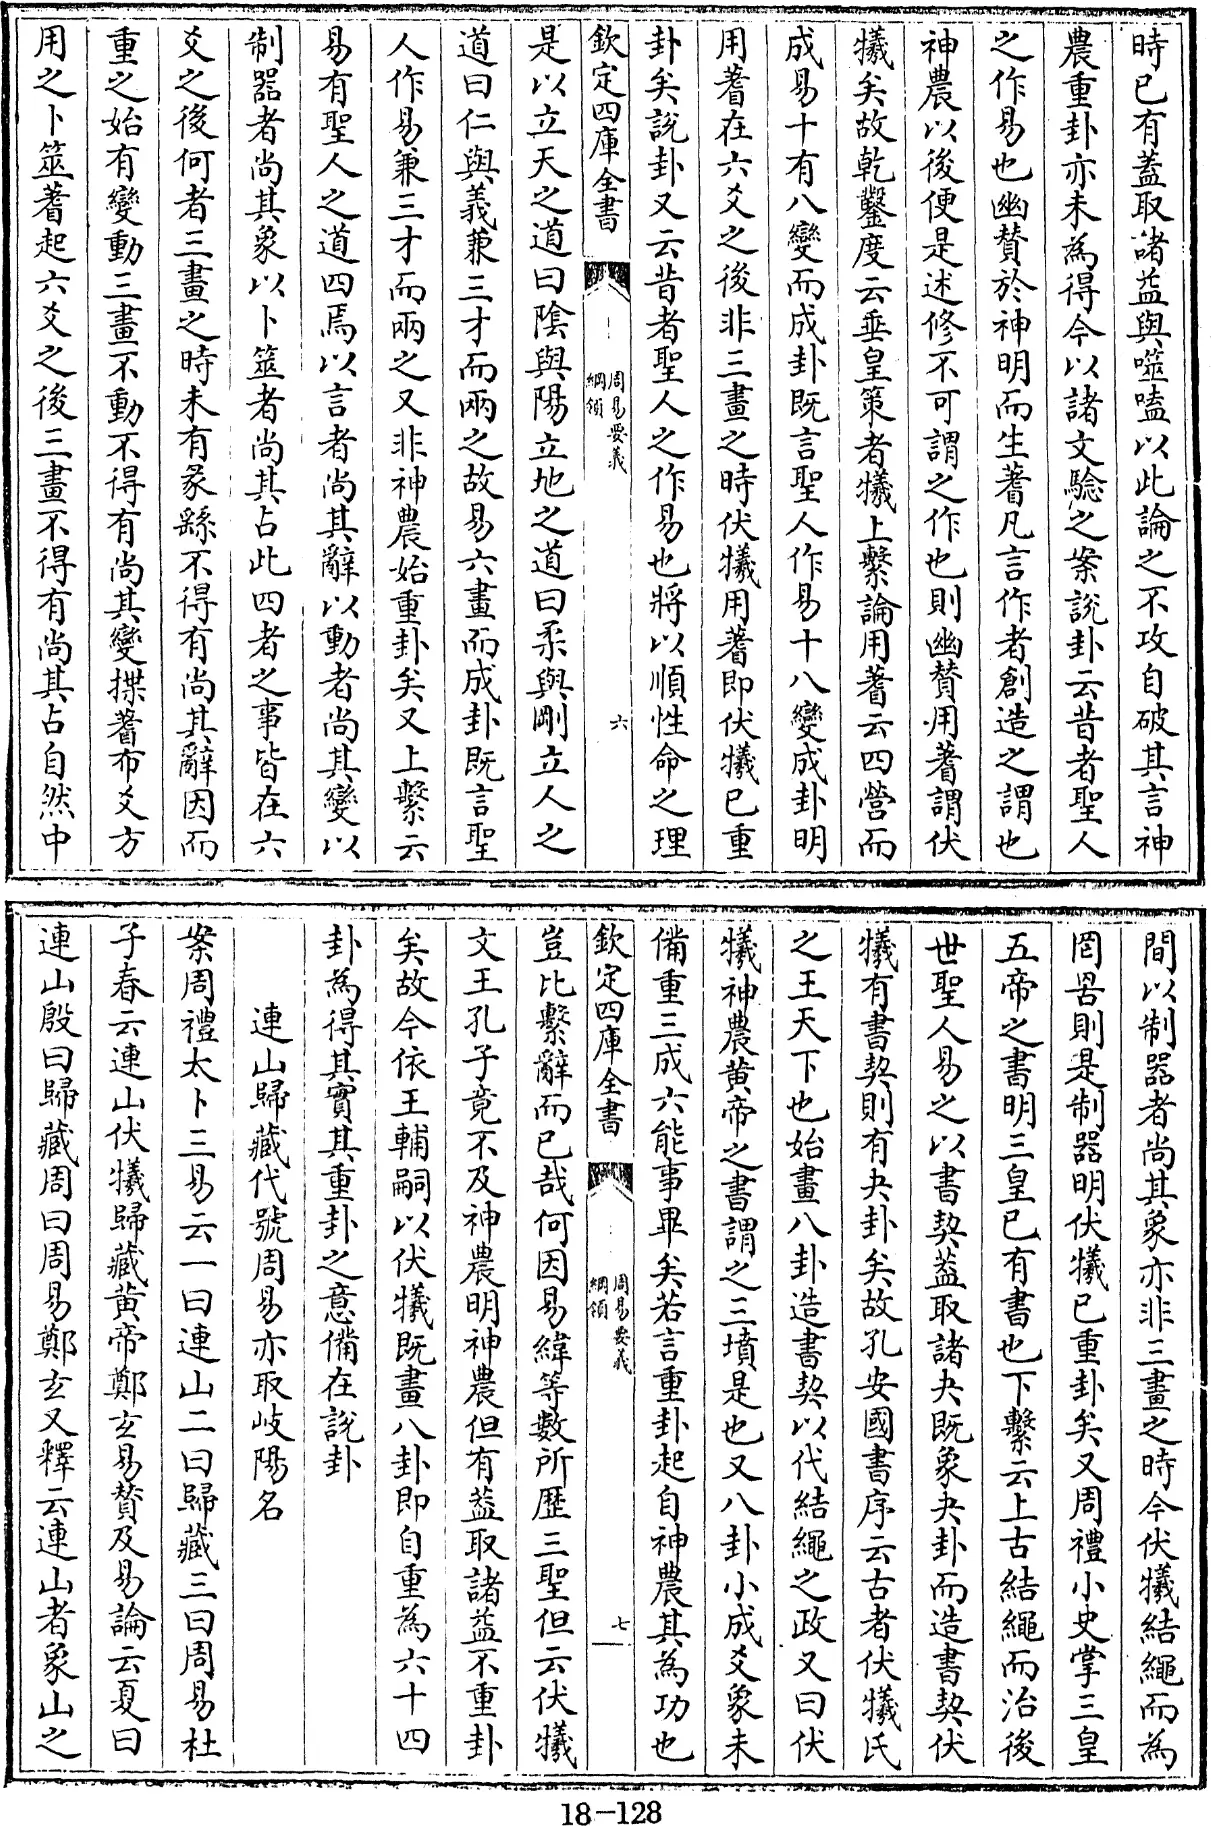 時已有蓋取諸益與噬嗑以此論之不攻自破其言神
農重卦亦未為得今以諸文驗之案說卦云昔者聖人
之作易也幽賛於神明而生蓍凡言作者創造之謂也
神農以後便是述修不可謂之作也則幽賛用蓍謂伏
犧矣故乾鑿度云垂皇策者犧上繫論用蓍云四營而
成易十有八變而成卦既言聖人作易十八變成卦明
用蓍在六爻之後非三畫之時伏犧用蓍即伏犧已重
卦矣說卦又云昔者聖人之作易也將以順性命之理
欽定四庫全書
周易要義
綱領
六
是以立天之道曰陰與陽立地之道曰柔與剛立人之
道曰仁與義兼三才而兩之故易六畫而成卦既言聖
人作易兼三才而兩之又非神農始重卦矣又上繫云
易有聖人之道四焉以言者尚其辭以動者尚其變以
制器者尚其象以卜筮者尚其占此四者之事皆在六
爻之後何者三畫之時未有彖繇不得有尚其辭因而
重之始有變動三畫不動不得有尚其變揲蓍布爻方
用之卜筮蓍起六爻之後三畫不得有尚其占自然中
間以制器者尚其象亦非三畫之時今伏犧結繩而為
罔罟則是制器明伏犧已重卦矣又周禮小史掌三皇
五帝之書明三皇已有書也下繫云上古結繩而治後
世聖人易之以書契蓋取諸夬既象夬卦而造書契伏
犧有書契則有夬卦矣故孔安國書序云古者伏犧氏
之王天下也始畫八卦造書契以代結繩之政又曰伏
犧神農黄帝之書謂之三墳是也又八卦小成爻象未
備重三成六能事畢矣若言重卦起自神農其為功也
欽定四庫全書
周易要義
綱領
七
豈比繫辭而已哉何因易緯等數所歴三聖但云伏犧
文王孔子竟不及神農明神農但有葢取諸益不重卦
矣故今依王輔嗣以伏犧既畫八卦即自重為六十四
卦為得其實其重卦之意備在說卦
連山歸藏代號周易亦取岐陽名
案周禮太卜三易云一曰連山二曰歸藏三曰周易杜
子春云連山伏犧歸藏黄帝鄭玄易賛及易論云夏曰
連山殷曰歸藏周曰周易鄭玄又釋云連山者象山之
18-128